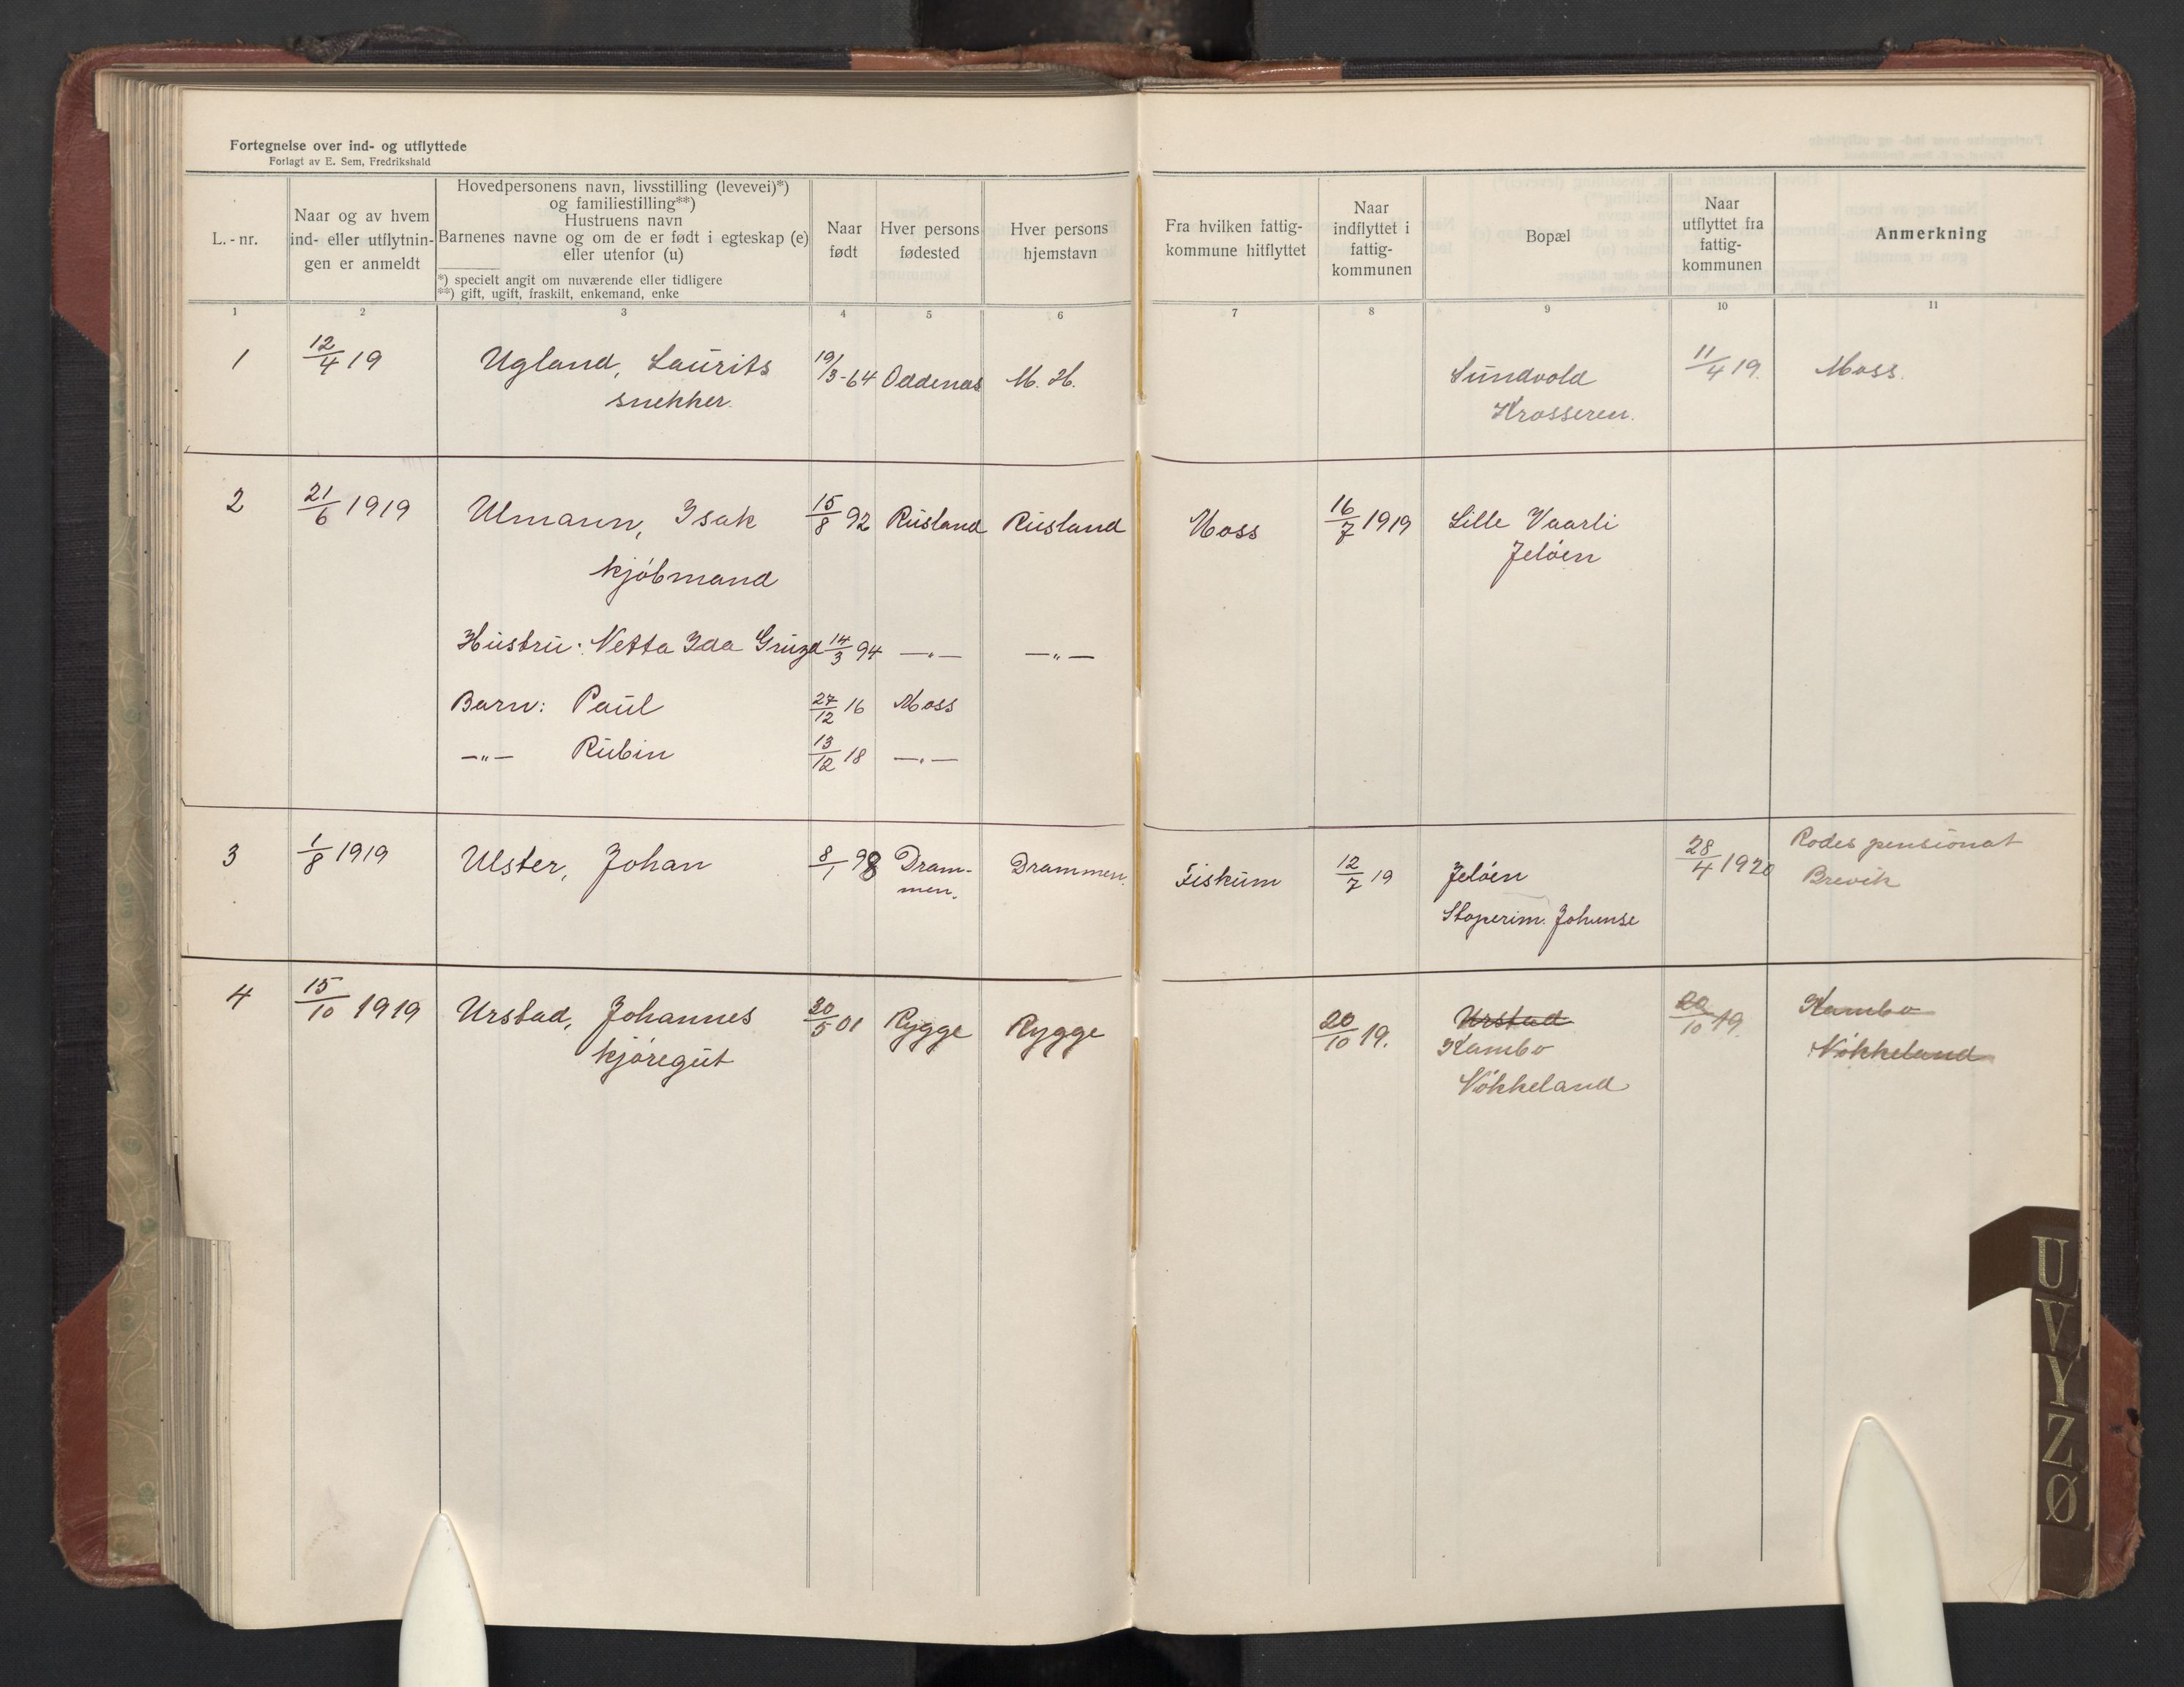 Fortegnelse over ind- og utflyttede
Forlagt av E. Sem, Fredrikshald
L.-nr.
Naar og av hvem
ind- eller utflytnin-
gen er anmeldt
Hovedpersonens navn, livsstilling (levevei)*)
og familiestilling**)
Hustruens navn
Barnenes navne og om de er født i egteskap (e)
eller utenfor (u)
*) specielt angit om nuværende eller tidligere
**) gift, ugift, fraskilt, enkemand, enke
Naar
født
Hver persons
fødested
Hver persons
hjemstavn
Fra hvilken fattig-
kommune hitflyttet
Naar
indflyttet i
fattig-
kommunen
Bopæl
Naar
utflyttet fra
fattig-
kommunen
Anmerkning
1 2 3 4 5 6 7 8 9 10 11
1 12/4 19 Ugland, Laurits 19/3-64 Oddenæs M. H. Sundvold 11/4 19. Moss.
snekker. Krosseren.
2 21/6 1919 Ulmann, Isak 15/8 92 Rusland Rusland Moss 16/7 1919 Lille Vaarli
kjøbmand Jeløen
Hustru: Netta Ida Gruzd 14/3 94 —„— —„—
Barn: Paul 27/12 16 Moss
—„— Rubin 13/12 18 —„—
3 1/8 1919 Ulster, Johan 8/1 98 Dram- Drammen. Fiskum 12/7 19 Jeløen 28/4 1920 Rodes pensionat
men. Brevik
Stoperim. Johanse
4 15/10 1919 Urstad, Johannes 30/5 01 Rygge Rygge 20/10 19. Urstad 20/10 19. Kambo
kjøregut Kambo Nökkeland
Nökkeland
U
V
Y
Z
Ø